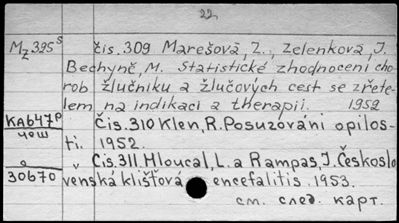 22.
Mz395s čis. 309 Marešová, Z., Zelenková, J.
Bechyně, M. Statistické zhodnocení cho
rob žlučníku a žlučových cest se zřete-
lem na indikaci a therapii. 1952
KA647p Čis. 310 Klen, R. Posuzování opilos-
чеш ti. 1952.
" Čis. 311. Hloucal, L. a Rampas, J. Českoslo
30670 venská klíšťová encefalitis. 1953.
см. след. карт.